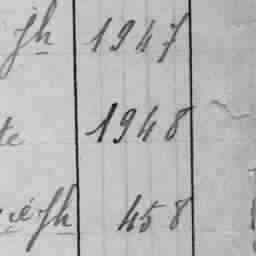 Jh 1947
te 1948
Jh 458